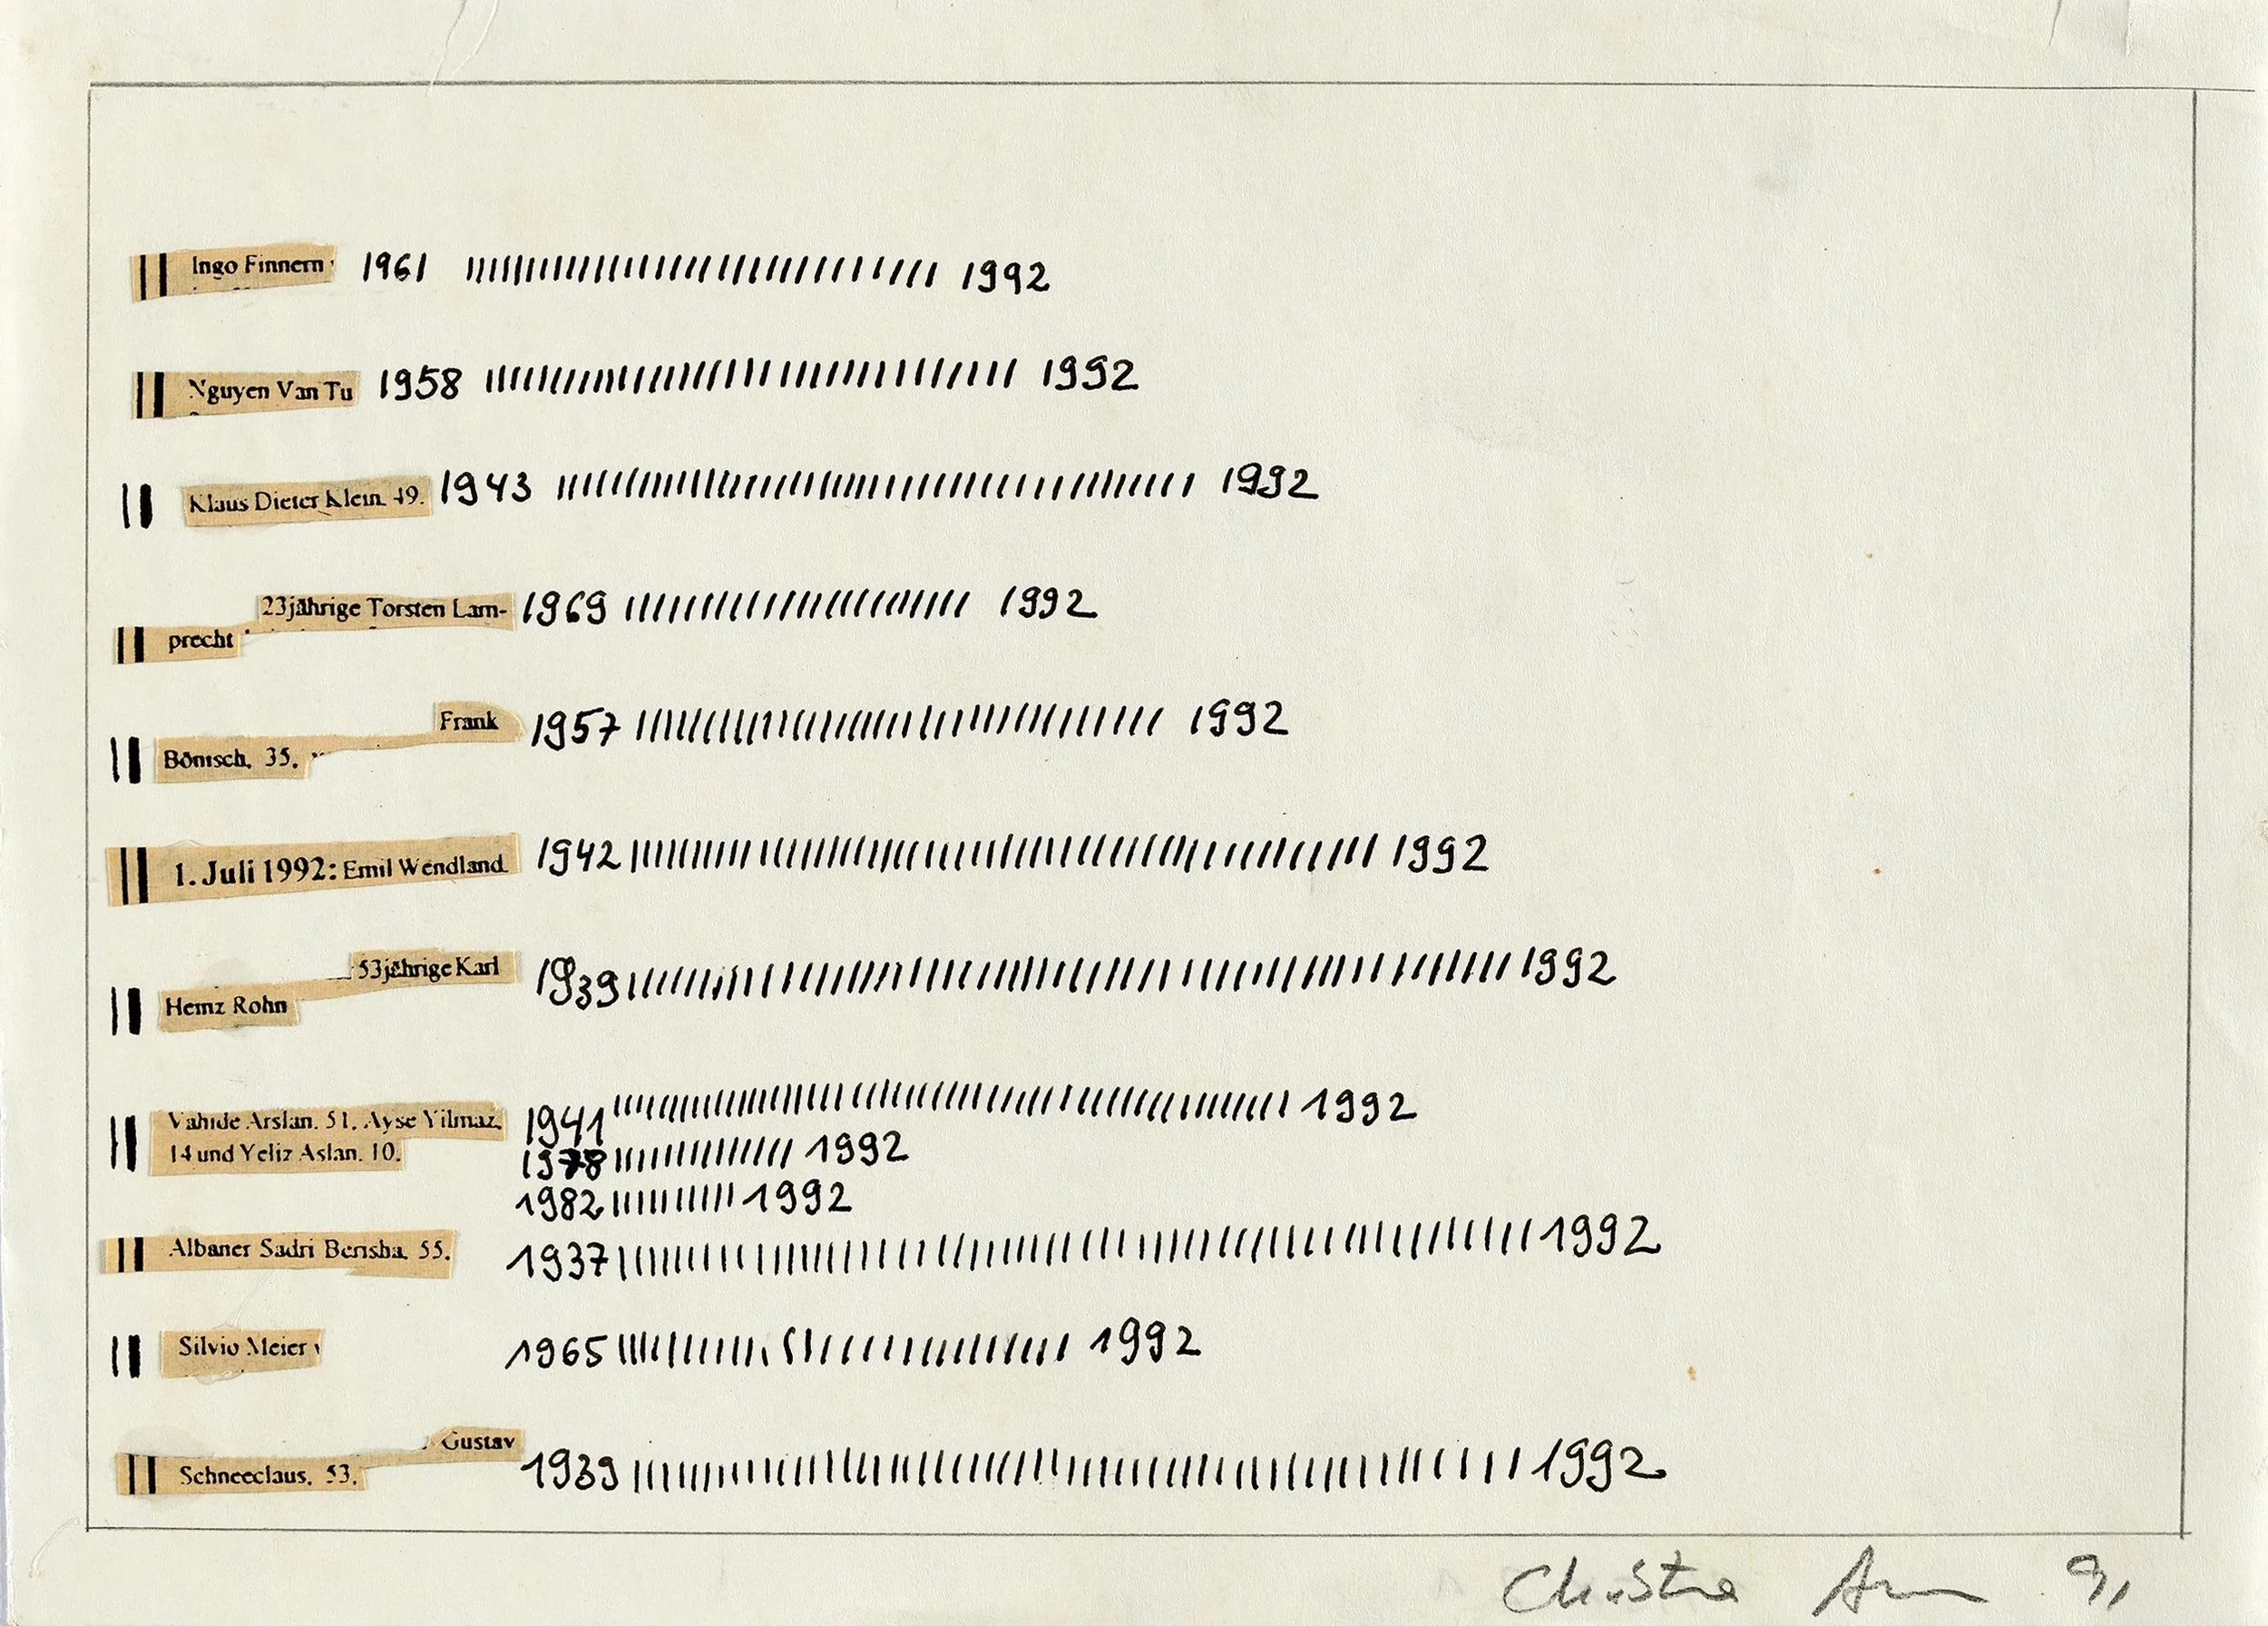 Ingo Finnern 1961 1992
Nguyen Van Tu 1958 1992
Klaus Dieter Klein. 49. 1943 1992
23jährige Torsten Lam- 1969 1992
precht
Frank 1957 1992
Bönisch, 35.
1. Juli 1992: Emil Wendland 1942 1992
53jährige Karl 1939 1992
Heinz Rohn
Vahide Arslan. 51. Ayse Yilmaz, 1941 1992
14 und Yeliz Aslan. 10. 1978 1992
1982 1992
Albaner Sadri Berisha, 55. 1937 1992
Silvio Meier 1965 1992
Gustav 1939 1992
Schneeclaus, 53.